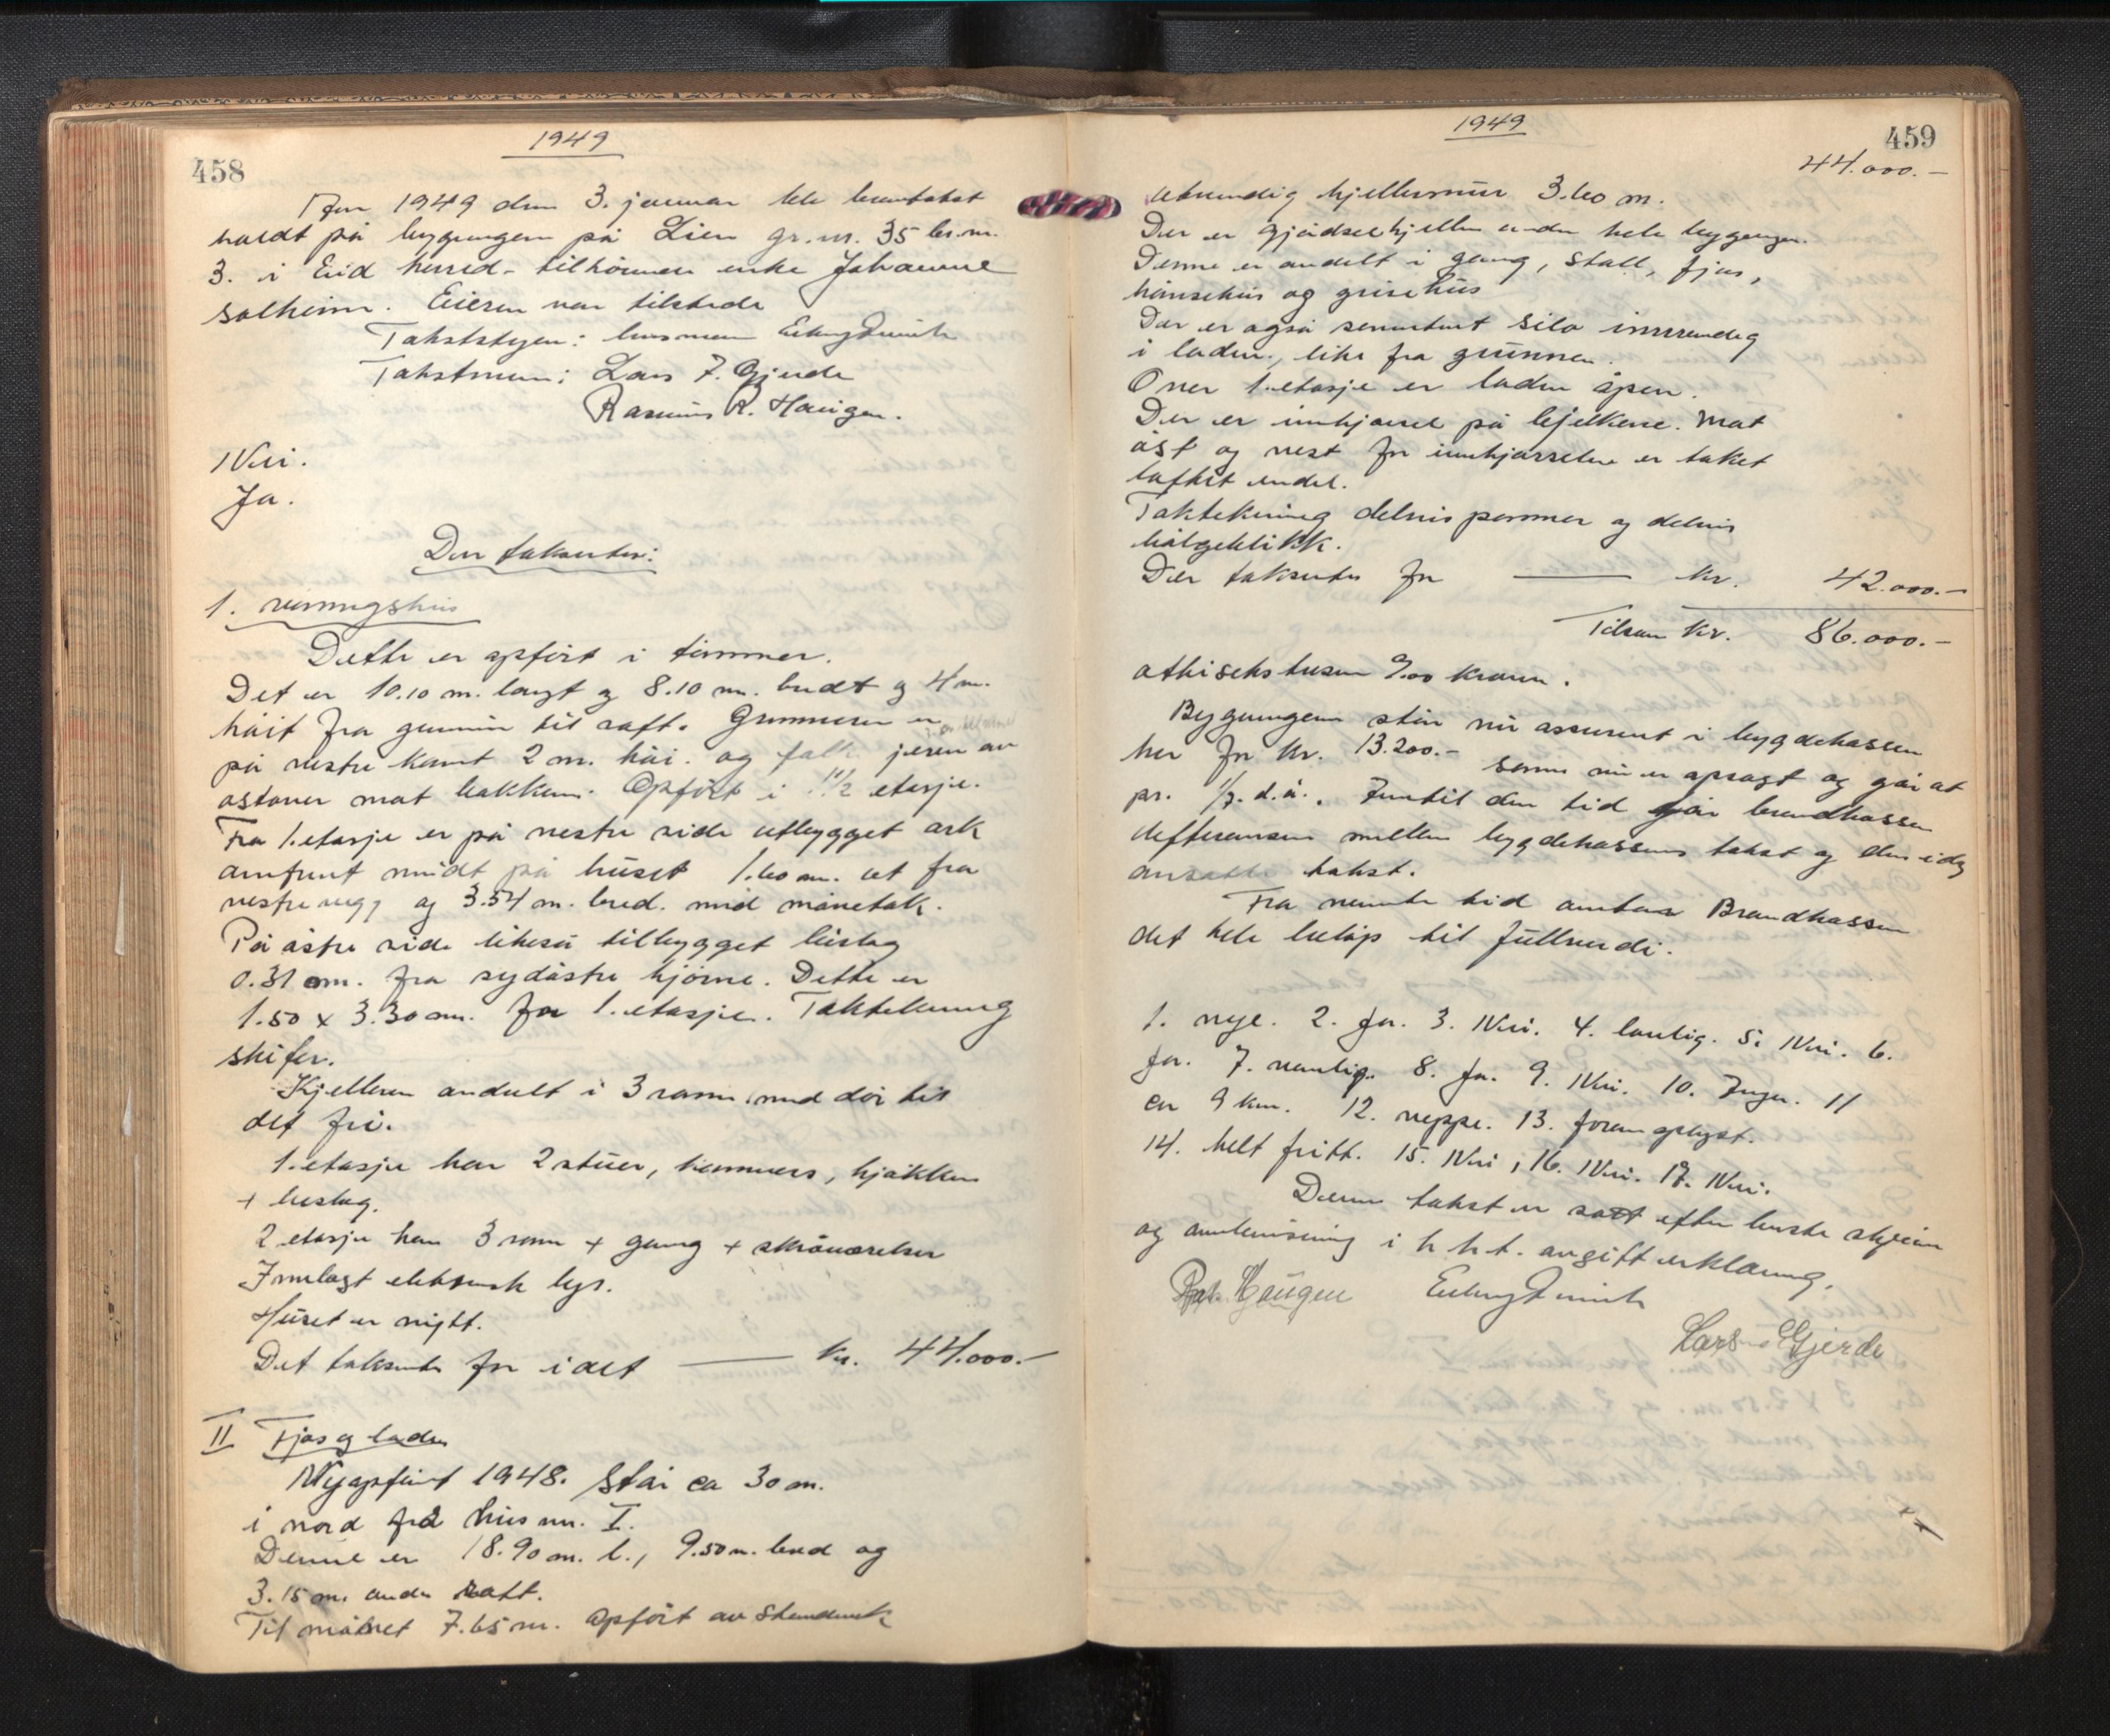 458
1949
År 1949 den 3. januar ble branntakst
holdt på bygningen på Lien gr.nr. 35 br.nr.
3. i Eid herred - tilhörende enke Johanne
Solheim. Eieren var tilstede
Takststyrer: lensmann
Takstmenn: Lars J. Gjerde
Rasmus R. Haugen.
Nei.
Ja.
Der takserdes:
1. våningshus
Dette er opfört i tömmer.
Det er 10.10 m. langt og 8.10 m. bredt og 4 m.
höit fra grunnen til raft. Grunnmuren er
på vestre kant 2 m. höi. og jevn av
ostover mot bakken. Opfört i 1 1/2 etasje.
Fra 1. etasje er på vestre side utbygget ark
omtrent midt på huset 1.60 m. ut fra
vestre vegg og 3.54 m. bred. med mönetak.
På östre side likeså tilbygget bislag
0.31 m. fra sydöstre hjörne. Dette er
1.50 x 3.30 m. for 1. etasje. Taktekning
skifer.
Kjelleren avdelt i 3 rom med dör til
det fri.
1. etasje har 2 stuer, kammers, kjökken
+ bislag.
2 etasje har 3 rom + gang + skråværelser
Innlagt elektrisk lys.
Huset er nytt.
Det takserdes for i alt — kr. 44.000.-
II Fjös og lade
Nyopfört 1948. Står ca 30 m.
i nord fra hus nr. I.
Denne er 18.90 m. l., 9.50 m. bred og
3.15 m. under raft.
Til mönet 7.65 m. Opfört av stenderverk
1949
459
44.000.-
utvendig kjellermur 3.60 m.
Der er gjödselkjeller under hele bygningen.
Denne er avdelt i gang, stall, fjös,
hönsehus og grisehus
Der er også sementert silo innvendig
i laden, like fra grunnen.
Over 1. etasje er laden åpen.
Der er innkjörsel på bjelkene. Mot
öst og vest for innkjörselen er taket
löftet endel.
Taktekning delvis panner og delvis
bölgeblikk.
Der takserdes for — kr. 42.000.-
Tilsam kr. 86.000.-
ottisekstusen 0/00 kroner.
Bygningene står nu assurert i bygdekassen
her for kr. 13.200.- som nu er opsagt og går ut
pr. 1/7. d.å. Inntil den tid går brandkassen
defferansen mellem bygdekassens takst og den idag
ansatte takst.
Fra nevnte tid overtar Brandkassen
det hele belöp til fullverdi.
1. nye. 2. Ja. 3. Nei. 4. lovlig. 5. Nei. 6.
Ja. 7. vanlig. 8. Ja. 9. Nei. 10. Ingen. 11
ca 9 km. 12. neppe. 13. foran oplyst.
14. helt fritt. 15. Nei, 16. Nei. 17. Nei.
Denne takst er satt efter beste skjönn
og overbevisning i h.h.t. avgitt erklæring.
Haugen
Lars Gjerde